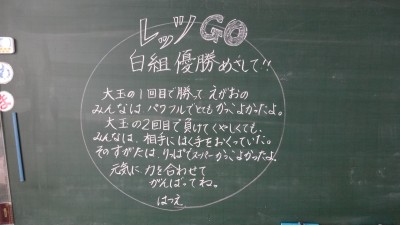 レッツGO
白組優勝めざして!!
大玉の1回目で勝って えがおの
みんなは パワフルでとてもかっこよかったよ。
大玉の2回目で負けてくやしくても、
みんなは、相手にはく手をおくっていた。
そのすがたは、りっぱでスーパーかっこよかったよ。
元気に 力を合わせて
がんばってね。
はつえ